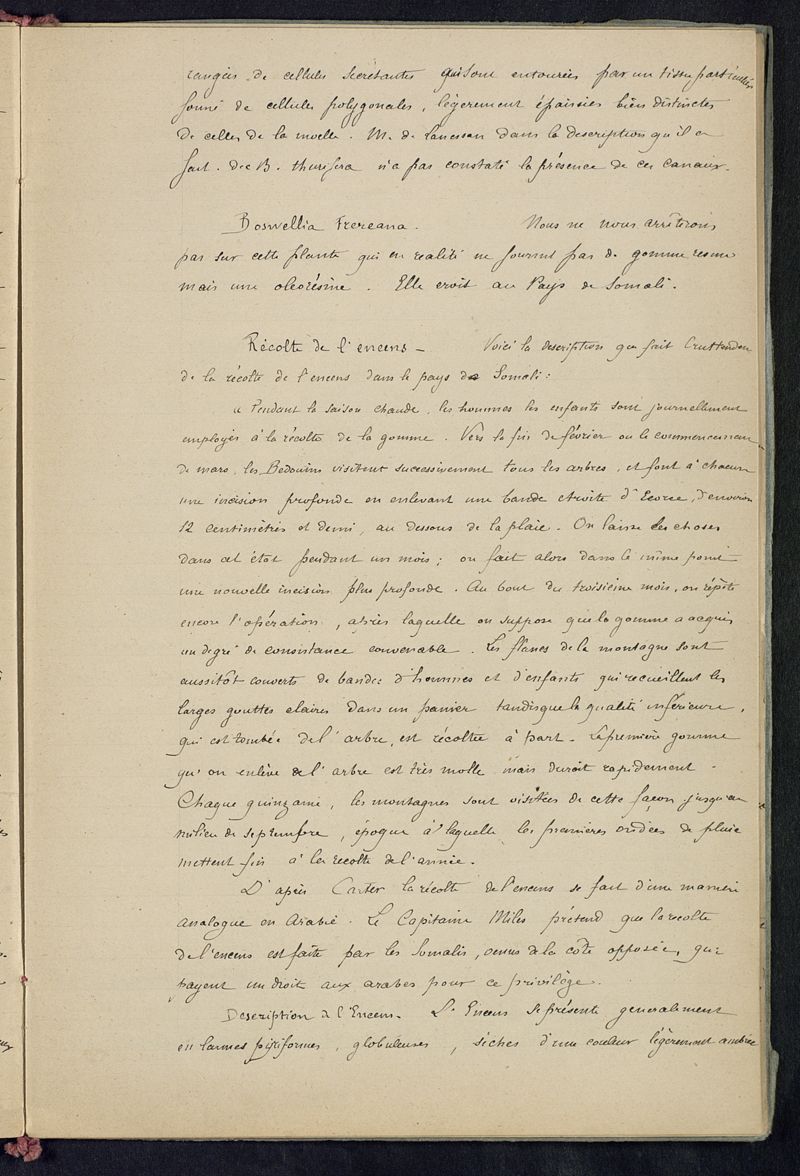 rangées de cellules sécrétantes qui sont entourées par un tissu particulier
formé de cellules polygonales, légerement épaissies bien distinctes
de celles de la moelle. M. de Lanessan dans la description qu'il en
fait. du B. thurifera n'a pas constaté la présence de ces canaux.
Boswellia Frereana. Nous ne nous arrêterons
pas sur cette plante qui en realité ne fournit pas de gomme resine
mais une oleorésine. Elle croit au Pays de Somali.
Récolte de l'encens – Voici la description que fait Cruttenden
de la récolte de l'encens dans le pays de Somali:
« Pendant la saison chaude, les hommes les enfants sont journellement
employés à la récolte de la gomme. Vers la fin de février ou le commencement
de mars, les Bedouins visitent successivement tous les arbres, et font à chacun
une incision profonde en enlevant une bande etroite d'Ecorce, d'environ
12 centimètres et demi, au dessous de la plaie. On laisse les choses
dans cet état pendant un mois; on fait alors dans le même point
une nouvelle incision plus profonde. Au bout du troisième mois, on répète
encore l'opération, après laquelle on suppose que la gomme a acquis
un degré de consistance convenable. Les flancs de la montagne sont
aussitôt couverts de bandes d'hommes et d'enfants qui recueillent les
larges gouttes claires dans un panier tandis que la qualité inférieure,
qui est tombée de l'arbre, est récoltée à part. La première gomme
qu'on enlève de l'arbre est très molle mais durcit rapidement –
Chaque quinzaine, les montagnes sont visitées de cette façon jusqu'au
milieu de septembre, époque à laquelle les premières ondées de pluie
mettent fin à la recolte de l'année.
D'après Carter la récolte de l'encens se fait d'une manière
analogue en Arabie. Le Capitaine Miles prétend que la recolte
de l'encens est faite par les Somalis, venus de la côte opposée, qui
payent un droit aux arabes pour ce privilège.
Description de l'Encens. L'Encens se présente generalement
en larmes piriformes, globuleuses, sèches d'une couleur légèrement ambrée